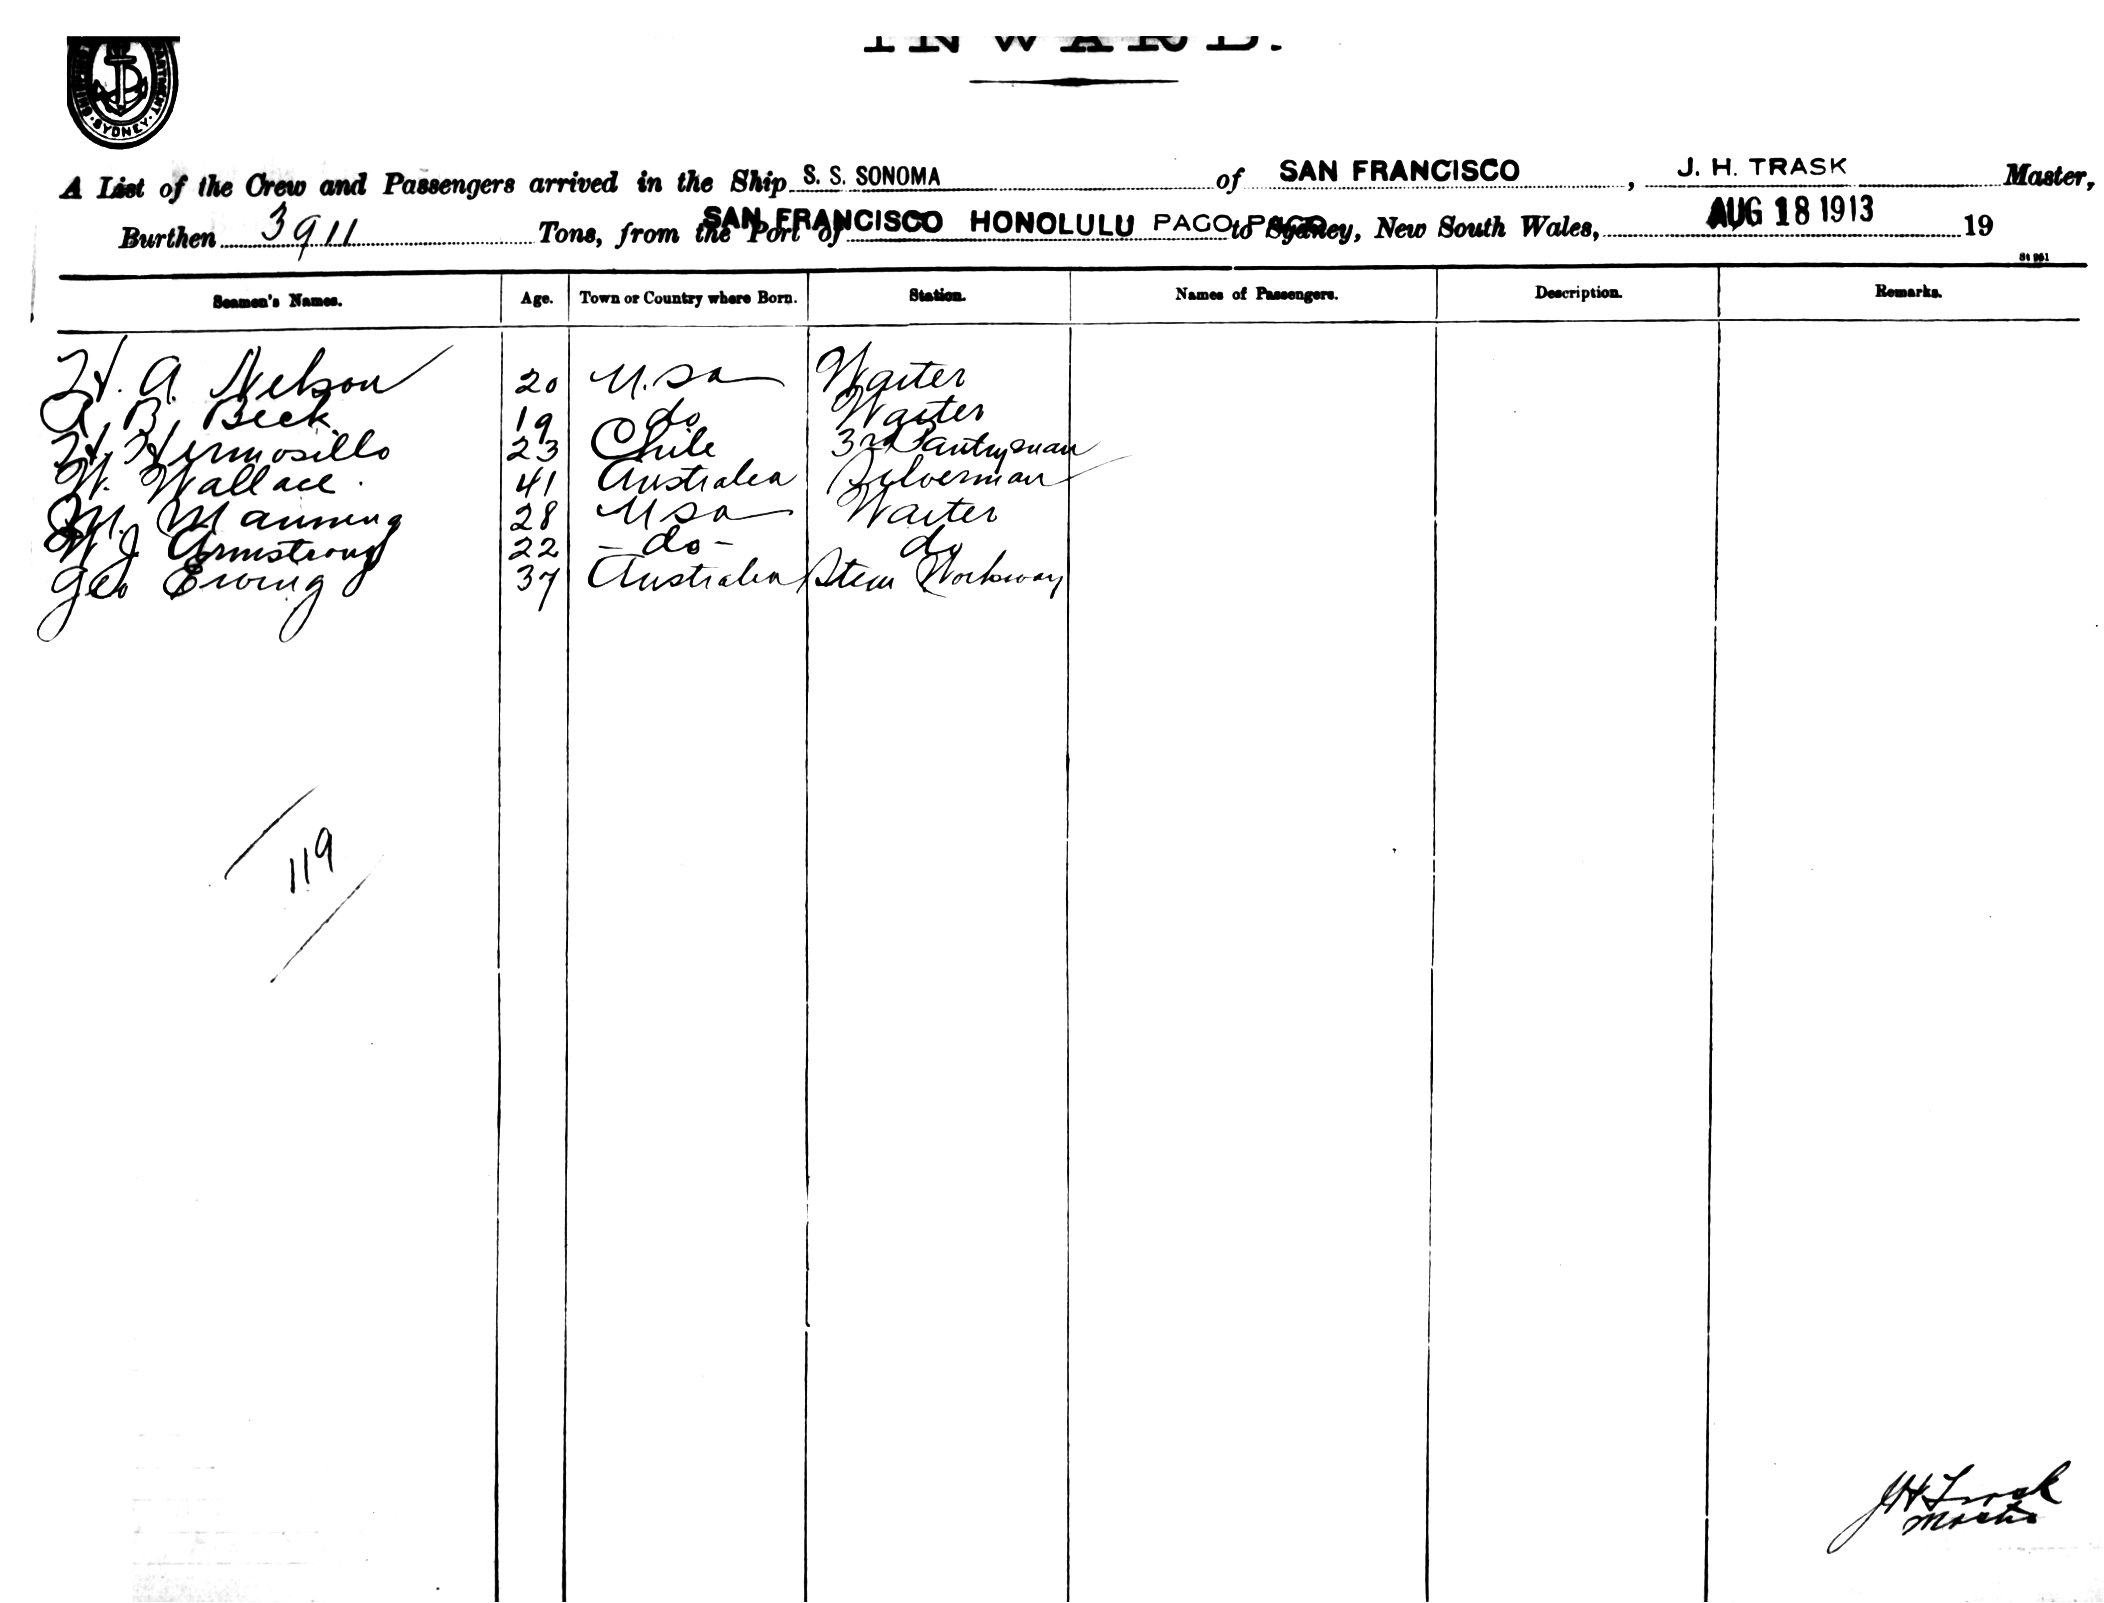 INWARD.
SHIPPING DEPARTMENT SYDNEY
A List of the Crew and Passengers arrived in the Ship S. S. SONOMA of SAN FRANCISCO, J. H. TRASK Master,
Burthen 3911 Tons, from the Port of SAN FRANCISCO HONOLULU PAGO PAGO to Sydney, New South Wales, AUG 18 1913 19
Seamen's Names. Age. Town or Country where Born. Station. Names of Passengers. Description. Remarks.
H. A. Nelson 20 U.S.A Waiter
A B. Beck 19 do Waiter
H. Hermosillo 23 Chile 3rd Pantryman
W. Wallace 41 Australia Silverman
M. Manning 28 USA Waiter
W J Armstrong 22 - do - do
Geo Ewing 37 Australia Stew Workway
119
JH Trask
Master